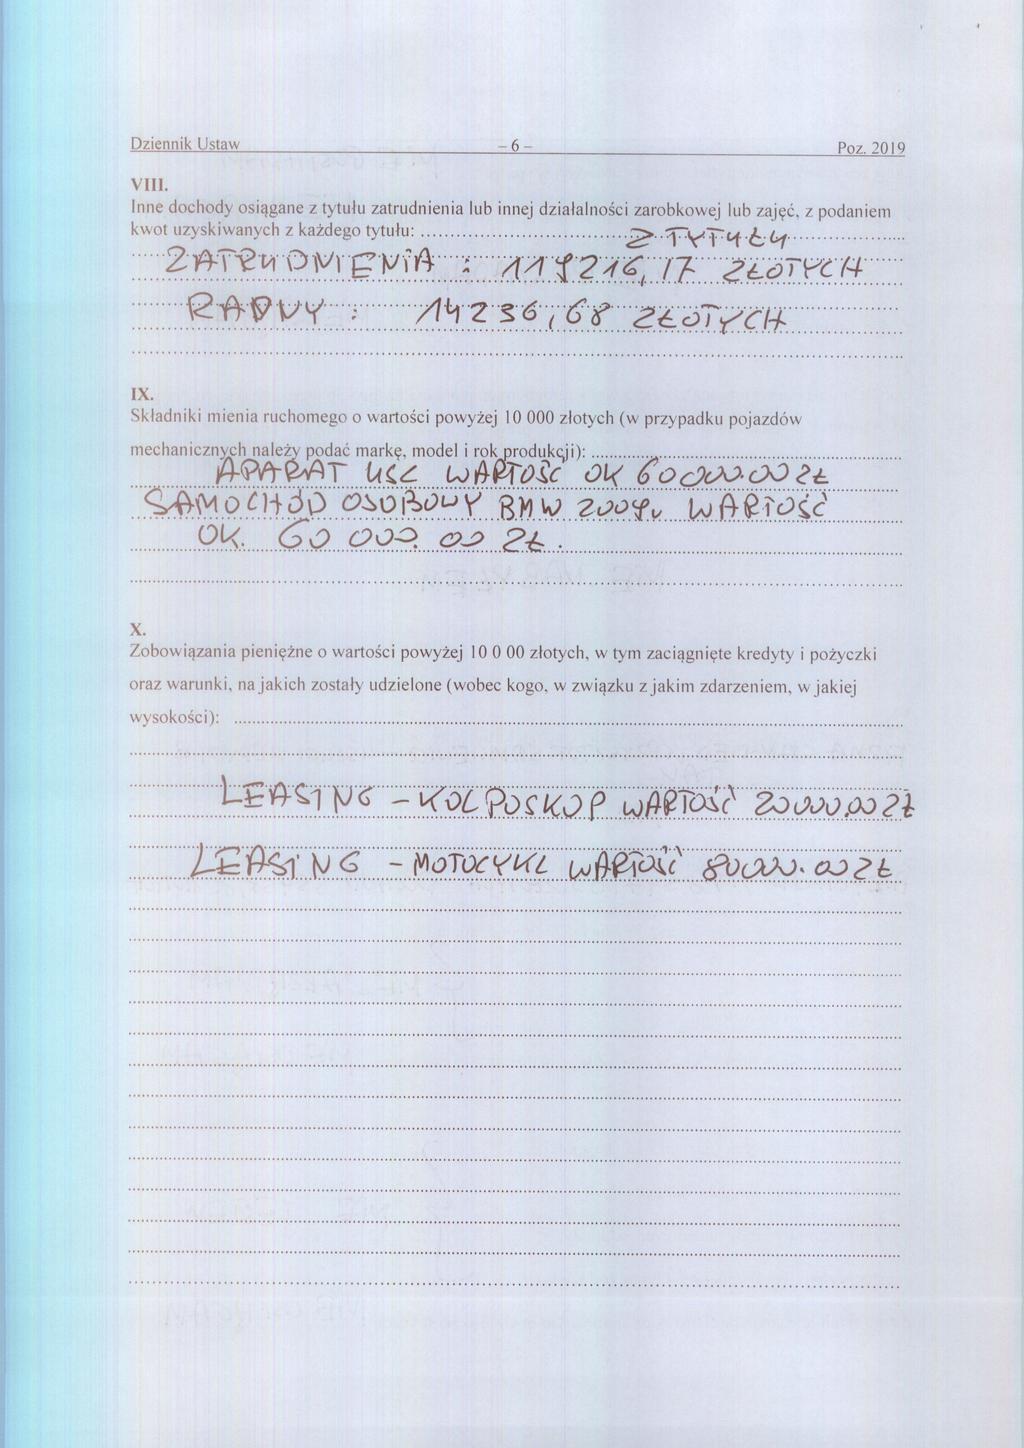 Dziennik Ustaw – 6 – Poz. 2019
VIII.
Inne dochody osiągane z tytułu zatrudnienia lub innej działalności zarobkowej lub zajęć, z podaniem
kwot uzyskiwanych z każdego tytułu: Z TYTUŁU
ZATRUDNIENIA : 119216,17 ZŁOTYCH
RADNY : 14236,68 ZŁOTYCH
IX.
Składniki mienia ruchomego o wartości powyżej 10 000 złotych (w przypadku pojazdów
mechanicznych należy podać markę, model i rok produkcji):
APARAT USG WARTOŚĆ OK 60000.00 ZŁ
SAMOCHÓD OSOBOWY BMW 2009r. WARTOŚĆ
OK. 60 000.00 ZŁ.
X.
Zobowiązania pieniężne o wartości powyżej 10 0 00 złotych, w tym zaciągnięte kredyty i pożyczki
oraz warunki, na jakich zostały udzielone (wobec kogo, w związku z jakim zdarzeniem, w jakiej
wysokości):
LEASING – KOLPOSKOP WARTOŚĆ 20000,00 ZŁ
LEASING – MOTOCYKL WARTOŚĆ 80000.00 ZŁ